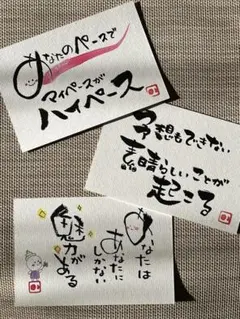 あなたのペースで
マイペースが
ハイペース
予想もできない
素晴らしいことが
起こる
あなたは
あなたに
しかない
魅力が
ある